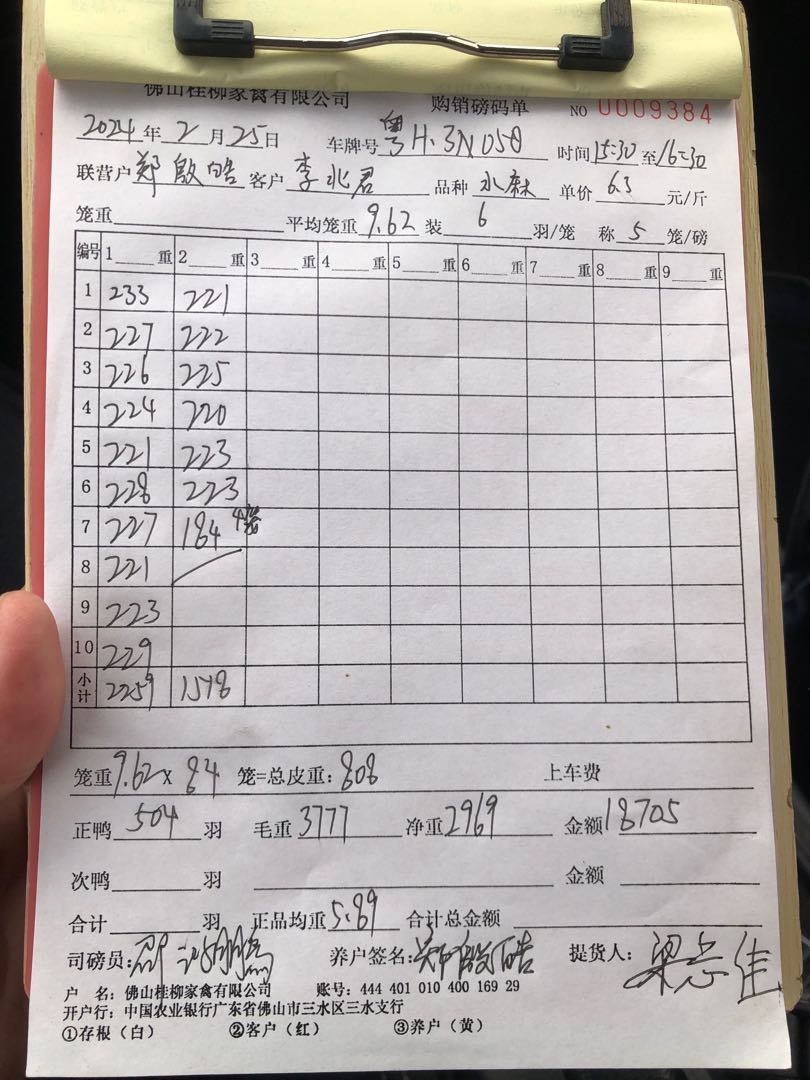 佛山桂柳家禽有限公司 购销磅码单 NO 0009384
2024年2月25日 车牌号 粤H·3N058 时间15:30至16:30
联营户 郑殷皓 客户 李兆君 品种 水麻 单价 6.3 元/斤
笼重 平均笼重 9.62 装 6 羽/笼 称 5 笼/磅
编号 1 重 2 重 3 重 4 重 5 重 6 重 7 重 8 重 9 重
1 233 221
2 227 222
3 226 225
4 224 220
5 221 223
6 228 223
7 227 184 4笼
8 221
9 223
10 229
小计 2259 1518
笼重 9.62 × 84 笼=总皮重: 808 上车费
正鸭 504 羽 毛重 3777 净重 2969 金额 18705
次鸭 羽 金额
合计 羽 正品均重 5.89 合计总金额
司磅员: 养户签名: 郑殷皓 提货人: 梁志佳
户 名: 佛山桂柳家禽有限公司 账号: 444 401 010 400 169 29
开户行: 中国农业银行广东省佛山市三水区三水支行
①存根（白） ②客户（红） ③养户（黄）